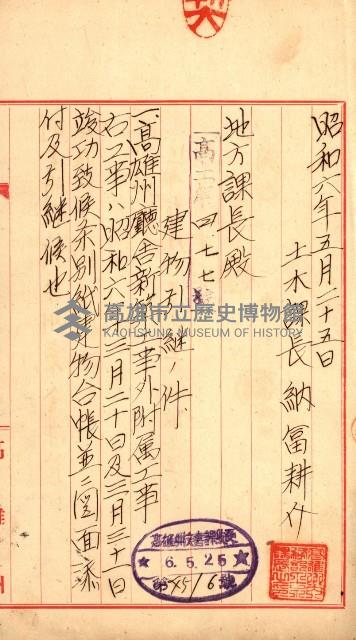 昭和六年五月二十五日
土木課長 納冨耕介
地方課長殿
高土
四七七
建物引継ノ件
一、高雄州廳舎新築工事外附属工事
右工事ハ昭和六年二月二十日及三月三十一日
竣功致候条別紙建物台帳並ニ図面添
付及引継候也
高雄市立歷史博物館
KAOHSIUNG MUSEUM OF HISTORY
6.5.25
高雄州